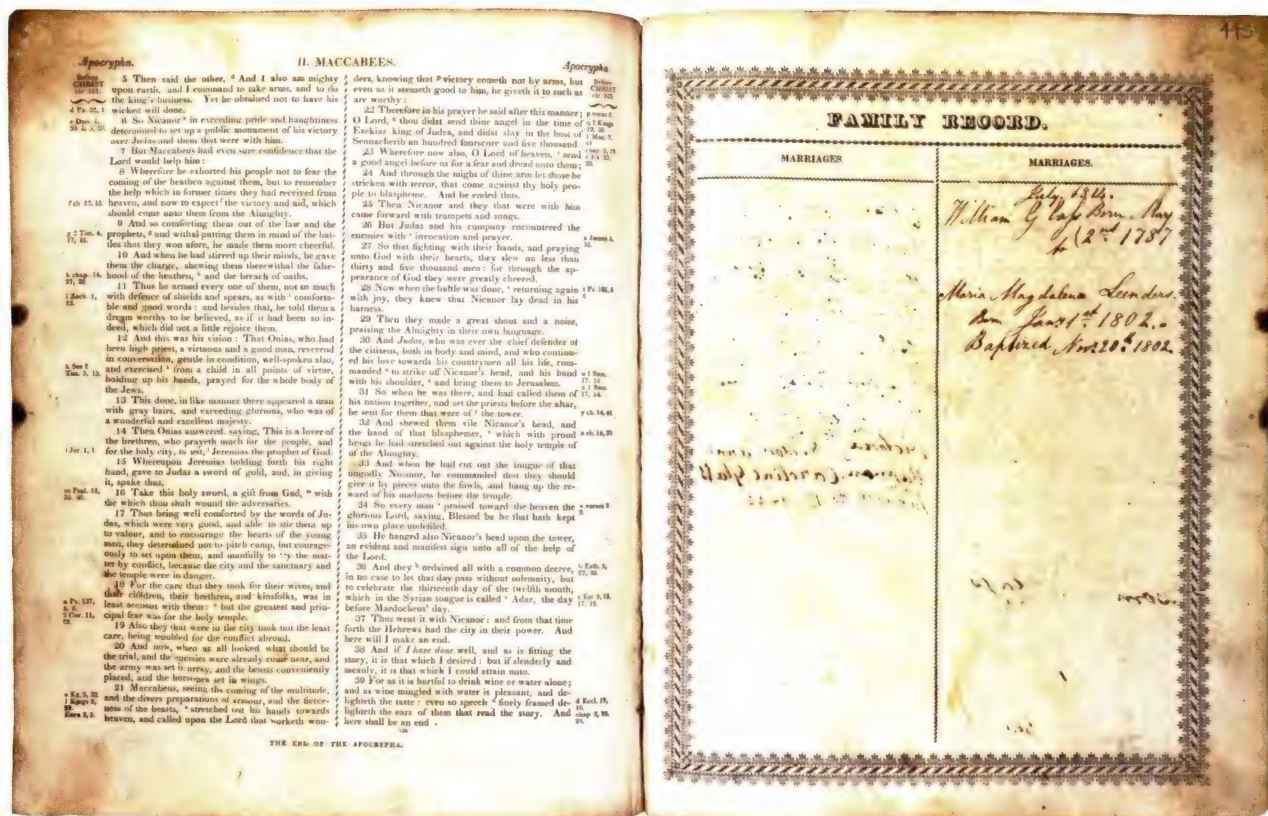 Apocrypha.
II. MACCABEES.
Apocrypha
Before
CHRIST
cir. 161.
5 Then said the other, d And I also am mighty
upon earth, and I command to take arms, and to do
the king's business. Yet he obtained not to have his
wicked will done.
6 So Nicanor e in exceeding pride and haughtiness
determined to set up a public monument of his victory
over Judas and them that were with him.
7 But Maccabeus had even sure confidence that the
Lord would help him:
8 Wherefore he exhorted his people not to fear the
coming of the heathen against them, but to remember
the help which in former times they had received from
heaven, and now to expect f the victory and aid, which
should come unto them from the Almighty.
9 And so comforting them out of the law and the
prophets, g and withal putting them in mind of the bat-
tles that they won afore, he made them more cheerful.
10 And when he had stirred up their minds, he gave
them the charge, shewing them therewithal the false-
hood of the heathen, h and the breach of oaths.
11 Thus he armed every one of them, not so much
with defence of shields and spears, as with i comforta-
ble and good words: and besides that, he told them a
dream worthy to be believed, as if it had been so in-
deed, which did not a little rejoice them.
12 And this was his vision: That Onias, who had
been high priest, a virtuous and a good man, reverend
in conversation, gentle in condition, well-spoken also,
and exercised k from a child in all points of virtue,
holding up his hands, prayed for the whole body of
the Jews.
13 This done, in like manner there appeared a man
with gray hairs, and exceeding glorious, who was of
a wonderful and excellent majesty.
14 Then Onias answered, saying, This is a lover of
the brethren, who prayeth much for the people, and
for the holy city, to wit, l Jeremias the prophet of God.
15 Whereupon Jeremias holding forth his right
hand, gave to Judas a sword of gold, and, in giving
it, spake thus,
16 Take this holy sword, a gift from God, m with
the which thou shalt wound the adversaries.
17 Thus being well comforted by the words of Ju-
das, which were very good, and able to stir them up
to valour, and to encourage the hearts of the young
men, they determined not to pitch camp, but courage-
ously to set upon them, and manfully to try the mat-
ter by conflict, because the city and the sanctuary and
the temple were in danger.
18 For the care that they took for their wives, and
their children, their brethren, and kinsfolks, was in
least account with them: n but the greatest and prin-
cipal fear was for the holy temple.
19 Also they that were in the city took not the least
care, being troubled for the conflict abroad.
20 And now, when as all looked what should be
the trial, and the enemies were already come near, and
the army was set in array, and the beasts conveniently
placed, and the horsemen set in wings.
21 Maccabeus, seeing the coming of the multitude,
and the divers preparations of armour, and the fierce-
ness of the beasts, o stretched out his hands towards
heaven, and called upon the Lord that worketh won-
ders, knowing that p victory cometh not by arms, but
even as it seemeth good to him, he giveth it to such as
are worthy:
22 Therefore in his prayer he said after this manner;
O Lord, q thou didst send thine angel in the time of
Ezekias king of Judea, and didst slay in the host of
Sennacherib an hundred fourscore and five thousand
23 Wherefore now also, O Lord of heaven, r send
a good angel before us for a fear and dread unto them;
24 And through the might of thine arm let those be
stricken with terror, that come against thy holy peo-
ple to blaspheme. And he ended thus.
25 Then Nicanor and they that were with him
came forward with trumpets and songs.
26 But Judas and his company encountered the
enemies with s invocation and prayer.
27 So that fighting with their hands, and praying
unto God with their hearts, they slew no less than
thirty and five thousand men: for through the ap-
pearance of God they were greatly cheered.
28 Now when the battle was done, t returning again
with joy, they knew that Nicanor lay dead in his
harness.
29 Then they made a great shout and a noise,
praising the Almighty in their own language.
30 And Judas, who was ever the chief defender of
the citizens, both in body and mind, and who continu-
ed his love towards his countrymen all his life, com-
manded u to strike off Nicanor's head, and his hand
with his shoulder, x and bring them to Jerusalem.
31 So when he was there, and had called them of
his nation together, and set the priests before the altar,
he sent for them that were of y the tower.
32 And shewed them vile Nicanor's head, and
the hand of that blasphemer, z which with proud
brags he had stretched out against the holy temple of
of the Almighty.
33 And when he had cut out the tongue of that
ungodly Nicanor, he commanded that they should
give it by pieces unto the fowls, and hang up the re-
ward of his madness before the temple.
34 So every man a praised toward the heaven the
glorious Lord, saying, Blessed be he that hath kept
his own place undefiled.
35 He hanged also Nicanor's head upon the tower,
an evident and manifest sign unto all of the help of
the Lord.
36 And they b ordained all with a common decree,
in no case to let that day pass without solemnity, but
to celebrate the thirteenth day of the twelfth month,
which in the Syrian tongue is called c Adar, the day
before Mardocheus' day.
37 Thus went it with Nicanor: and from that time
forth the Hebrews had the city in their power. And
here will I make an end.
38 And if I have done well, and as is fitting the
story, it is that which I desired: but if slenderly and
meanly, it is that which I could attain unto.
39 For as it is hurtful to drink wine or water alone;
and as wine mingled with water is pleasant, and de-
lighteth the taste: even so speech d finely framed de-
lighteth the ears of them that read the story. And
here shall be an end.
THE END OF THE APOCRYPHA.
FAMILY RECORD.
MARRIAGES.
MARRIAGES.
William Glass Born May
2nd 1787
Maria Magdalena Leenders.
Born Jany 1st. 1802.
Baptized Novr 20th. 1802